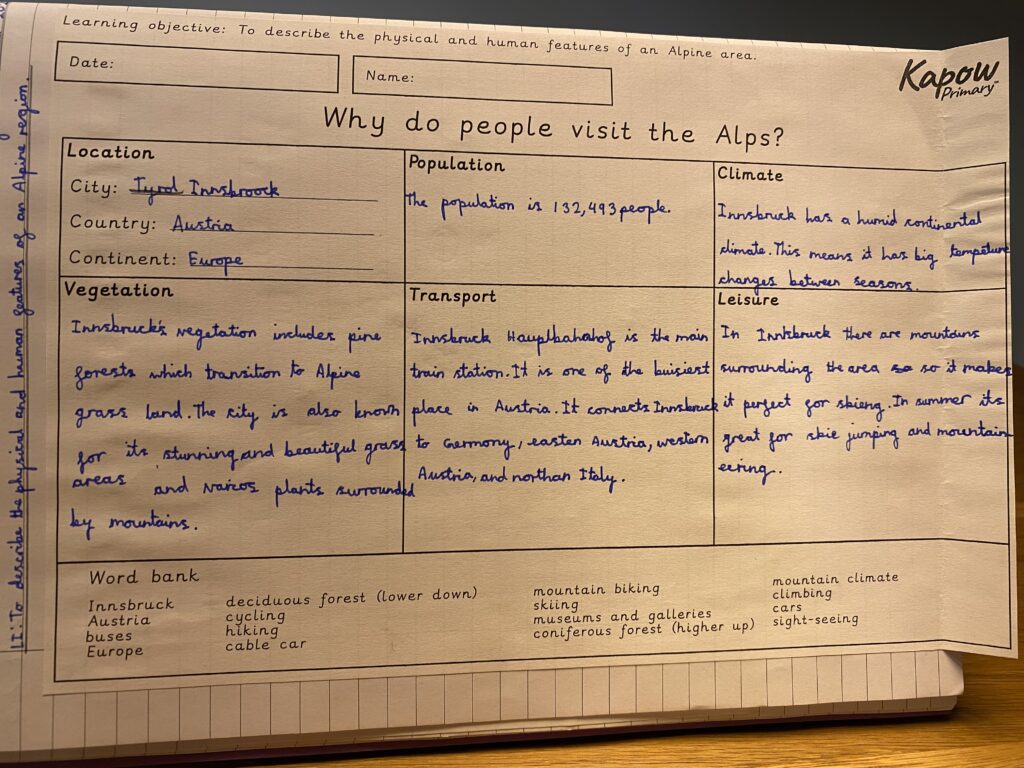 Learning objective: To describe the physical and human features of an Alpine area.
Date:
Name:
Kapow
Primary™
Why do people visit the Alps?
LI: To describe the physical and human features of an Alpine region.
Location
City: Tyrol Innsbroock
Country: Austria
Continent: Europe
Population
The population is 132,493 people.
Climate
Innsbruck has a humid continental
climate. This means it has big tempeture
changes between seasons.
Vegetation
Innsbruck's vegetation includes pine
forests which transition to Alpine
grass land. The city is also known
for its stunning and beautiful grass
areas and varios plants surrounded
by mountains.
Transport
Innsbruck Hauplbahahof is the main
train station. It is one of the buisiest
place in Austria. It connects Innsbruck
to Germony, eastern Austria, western
Austria, and northan Italy.
Leisure
In Innkbruck there are mountains
surrounding the area so so it makes
it perfect for skieng. In summer its
great for skie jumping and mountain
eering.
Word bank
Innsbruck
Austria
buses
Europe
deciduous forest (lower down)
cycling
hiking
cable car
mountain biking
skiing
museums and galleries
coniferous forest (higher up)
mountain climate
climbing
cars
sight-seeing